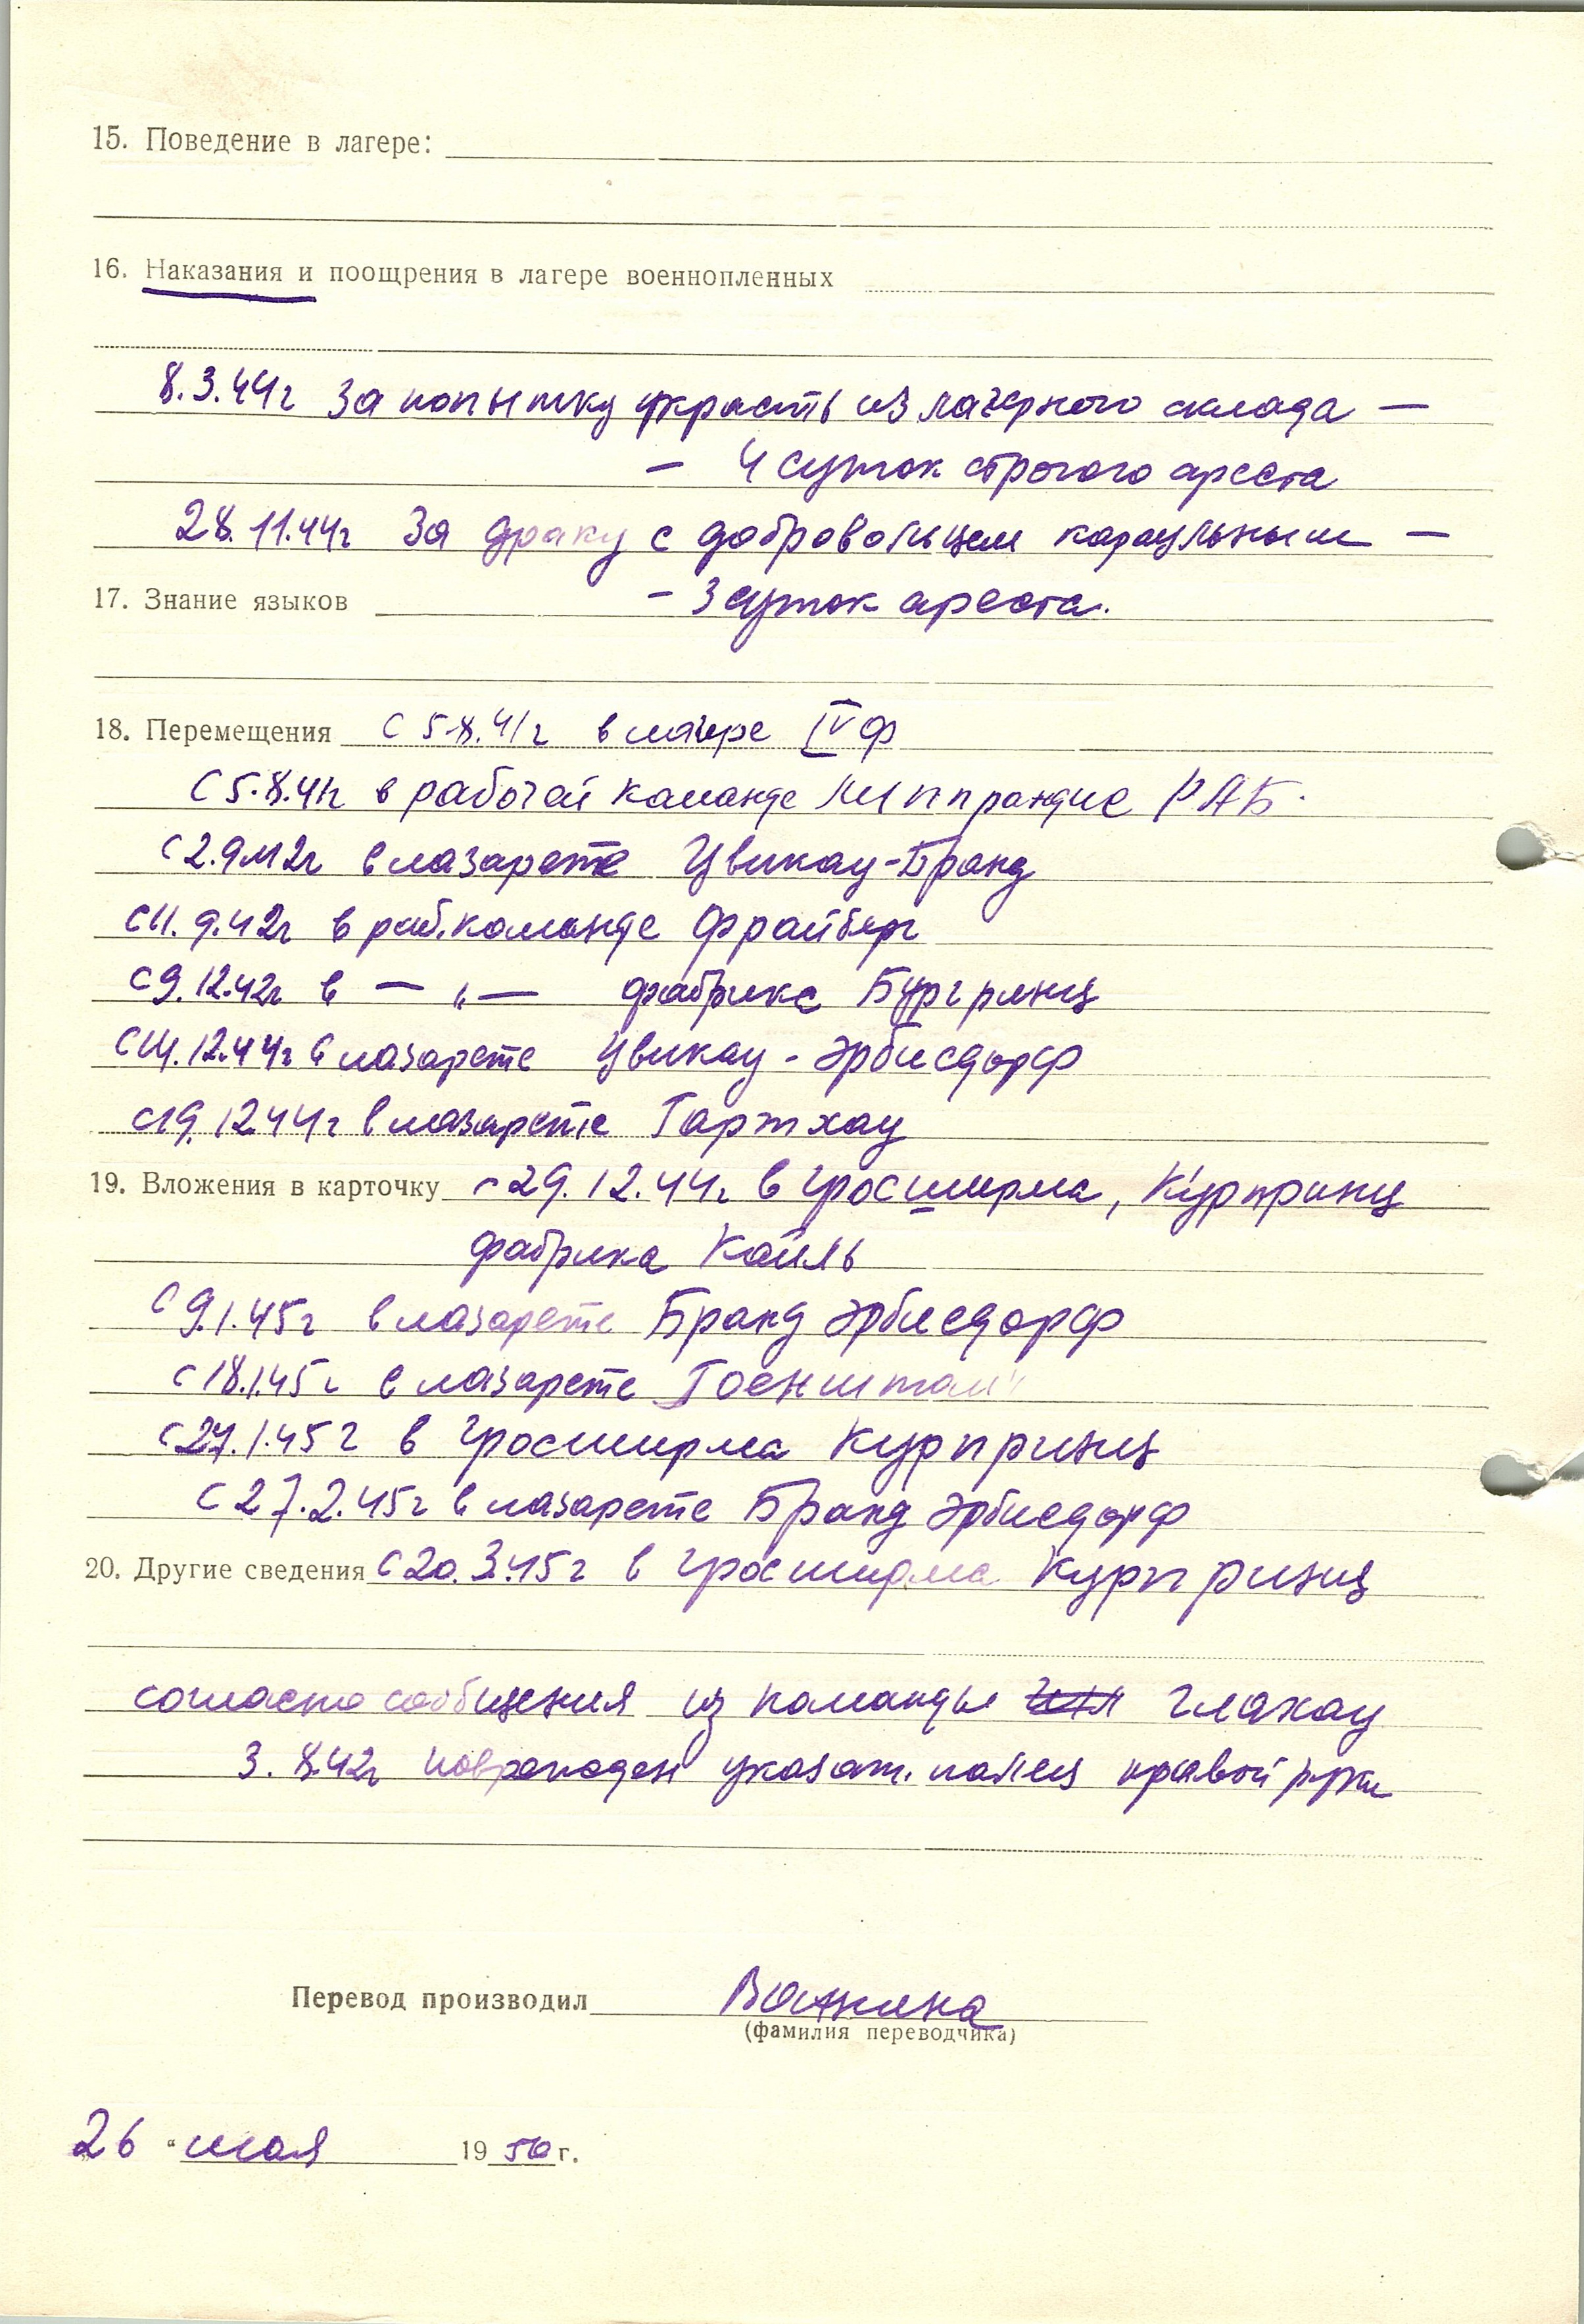 15. Поведение в лагере:
16. Наказания и поощрения в лагере военнопленных
8.3.44г За попытку украсть из лагерного склада —
— 4 суток строгого ареста
28.11.44г За драку с добровольцем караульным —
17. Знание языков — 3 суток ареста.
18. Перемещения С 5.8.41г в лагере IVф
С 5.8.41г в рабочей команде РАБ.
С 2.9.42г в лазарете Цвикау-Бранд
С 11.9.42г в раб.команде Фрайберг
С 9.12.42г в — „ — фабрике
С 14.12.44г в лазарете Цвикау - Эрбисдорф
С 19.12.44г в лазарете Гартхау
19. Вложения в карточку с 29.12.44г в Гросширма, Курпринц
фабрика Кайль
С 9.1.45г в лазарете Бранд Эрбисдорф
С 18.1.45г в лазарете
С 27.1.45г в Гросширма Курпринц
С 27.2.45г в лазарете Бранд Эрбисдорф
20. Другие сведения С 20.3.45г в Гросширма Курпринц
согласно сообщения из команды Глахау
3.8.42г поврежден указат. палец правой руки
Перевод производил
(фамилия переводчика)
26 " мая 1950 г.